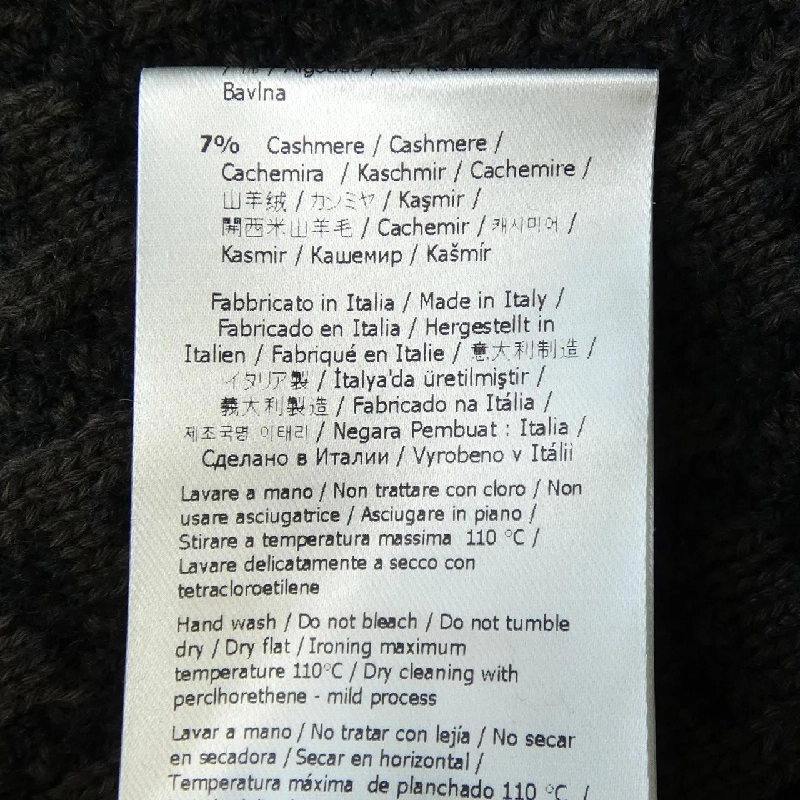 Bavlna
7% Cashmere / Cashmere /
Cachemira / Kaschmir / Cachemire /
山羊绒 / カシミヤ / Kaşmir /
開西米山羊毛 / Cachemir / 캐시미어 /
Kasmir / Кашемир / Kašmír
Fabbricato in Italia / Made in Italy /
Fabricado en Italia / Hergestellt in
Italien / Fabriqué en Italie / 意大利制造 /
イタリア製 / İtalya'da üretilmiştir /
義大利製造 / Fabricado na Itália /
제조국명 이태리 / Negara Pembuat : Italia /
Сделано в Италии / Vyrobeno v Itálii
Lavare a mano / Non trattare con cloro / Non
usare asciugatrice / Asciugare in piano /
Stirare a temperatura massima 110 °C /
Lavare delicatamente a secco con
tetracloroetilene
Hand wash / Do not bleach / Do not tumble
dry / Dry flat / Ironing maximum
temperature 110°C / Dry cleaning with
perclhorethene - mild process
Lavar a mano / No tratar con lejía / No secar
en secadora / Secar en horizontal /
Temperatura máxima de planchado 110 °C /